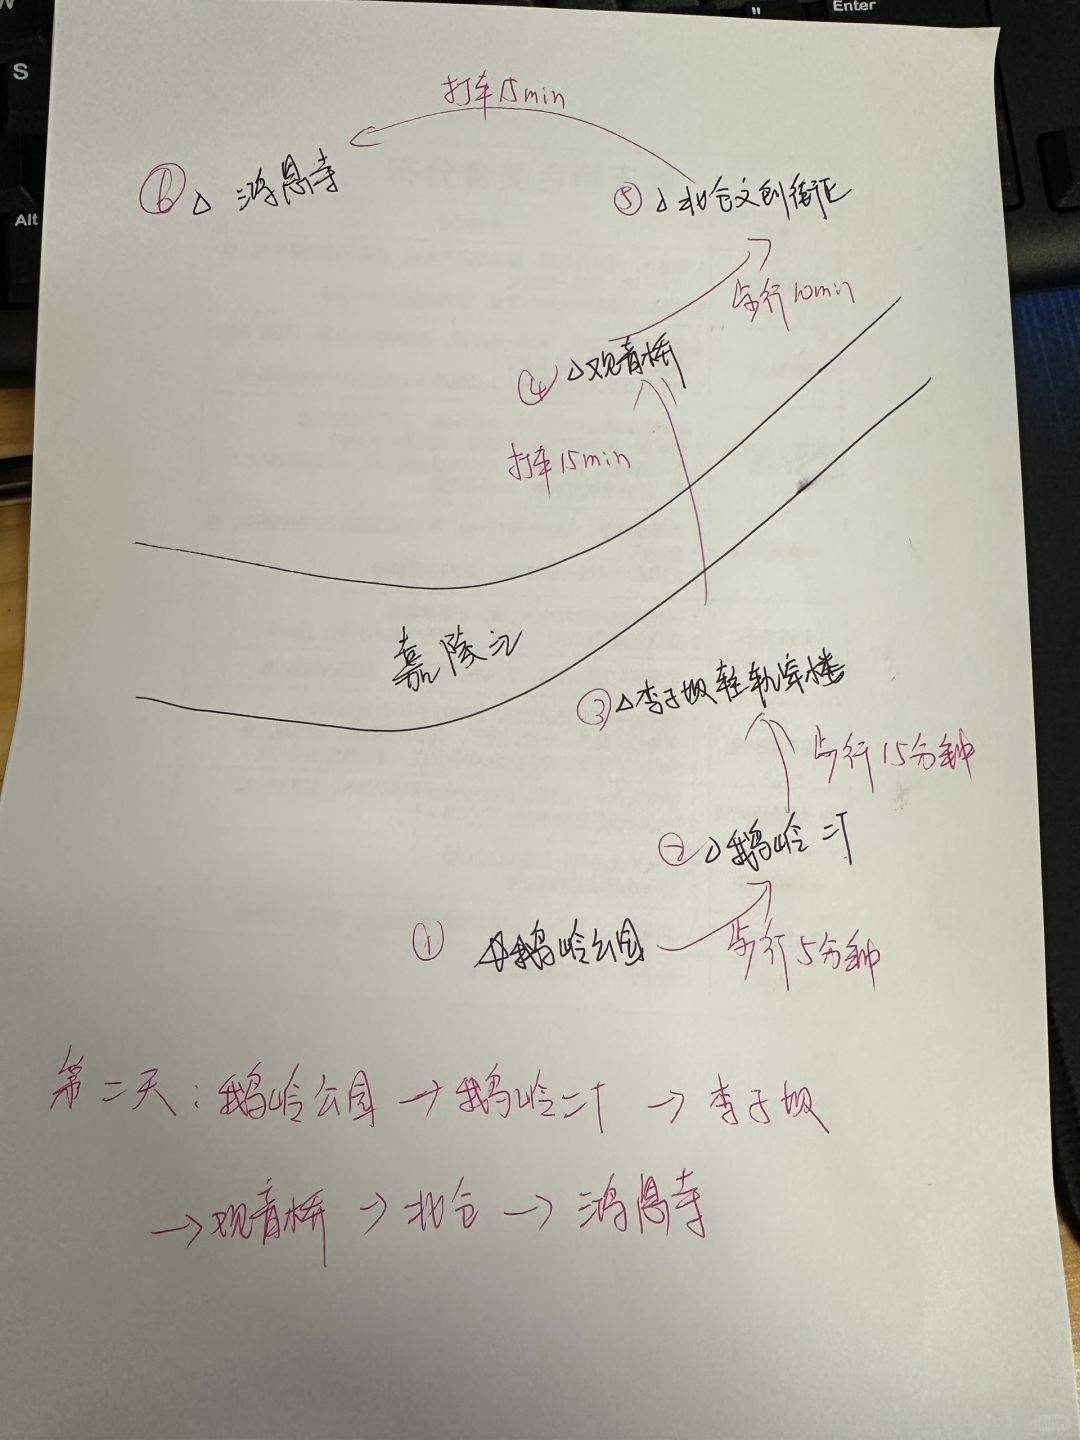 打车15min
⑥△鸿恩寺
⑤△北仓文创街区
步行10min
④△观音桥
打车15min
嘉陵江
③△李子坝轻轨穿楼
步行15分钟
②△鹅岭二厂
①△鹅岭公园
步行5分钟
第二天:鹅岭公园→鹅岭二厂→李子坝
→观音桥→北仓→鸿恩寺
S
Alt
Enter